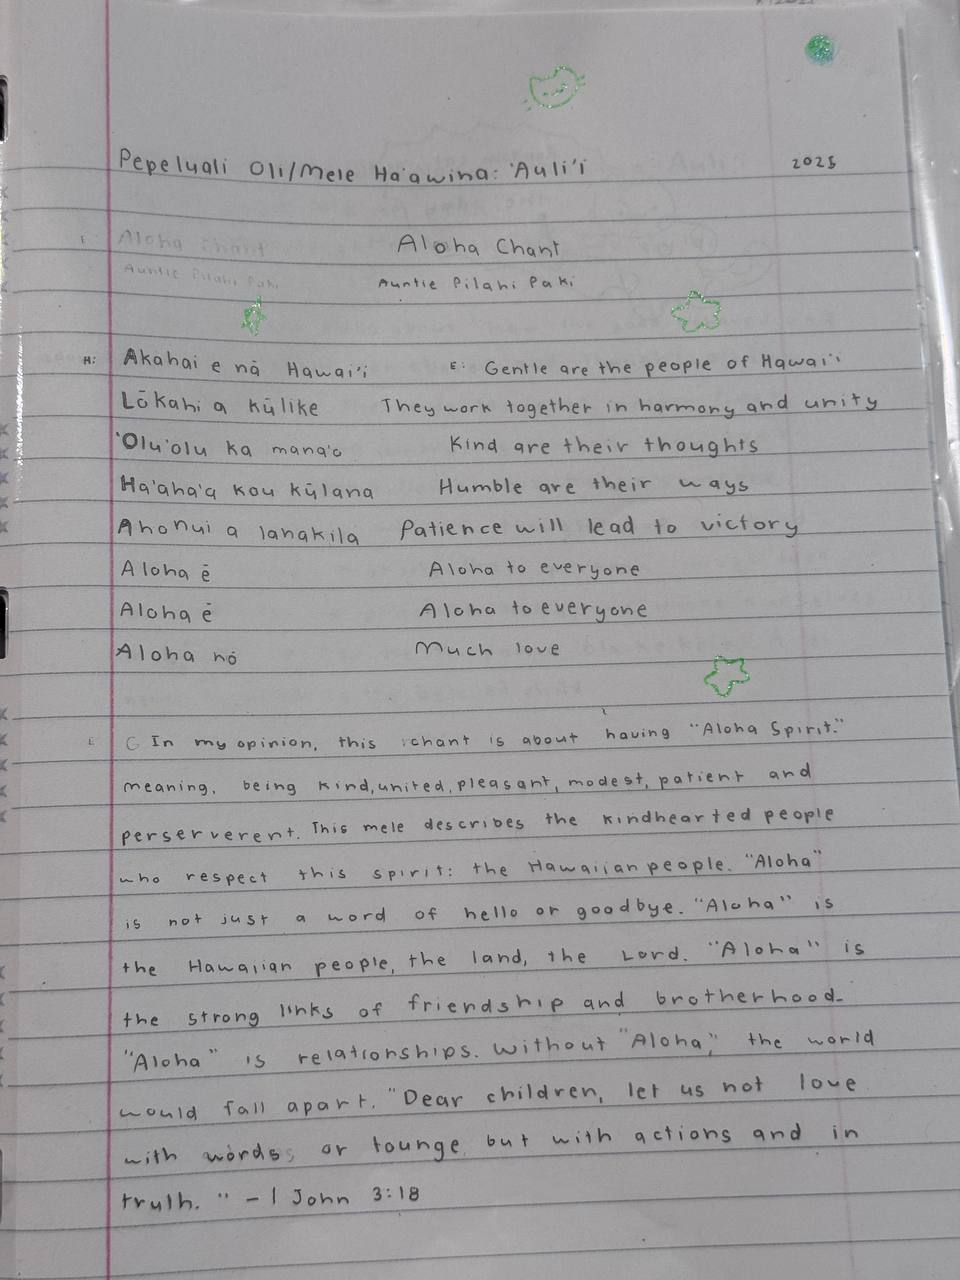 Pepeluali Oli/Mele Ha'awina: 'Auli'i 2025
Aloha Chant Aloha Chant
Auntie Pilahi Paki Auntie Pilahi Paki
H: Akahai e nā Hawai'i E: Gentle are the people of Hawai'i
Lōkahi a kūlike They work together in harmony and unity
'Olu'olu ka mana'o Kind are their thoughts
Ha'aha'a kou kūlana Humble are their ways
Ahonui a lanakila Patience will lead to victory
Aloha ē Aloha to everyone
Aloha ē Aloha to everyone
Aloha nō Much love
In my opinion, this chant is about having "Aloha Spirit."
meaning, being kind, united, pleasant, modest, patient and
perserverent. This mele describes the kindhearted people
who respect this spirit: the Hawaiian people. "Aloha"
is not just a word of hello or goodbye. "Aloha" is
the Hawaiian people, the land, the Lord. "Aloha" is
the strong links of friendship and brotherhood.
"Aloha" is relationships. Without "Aloha", the world
would fall apart. "Dear children, let us not love
with words or tounge but with actions and in
truth." - 1 John 3:18